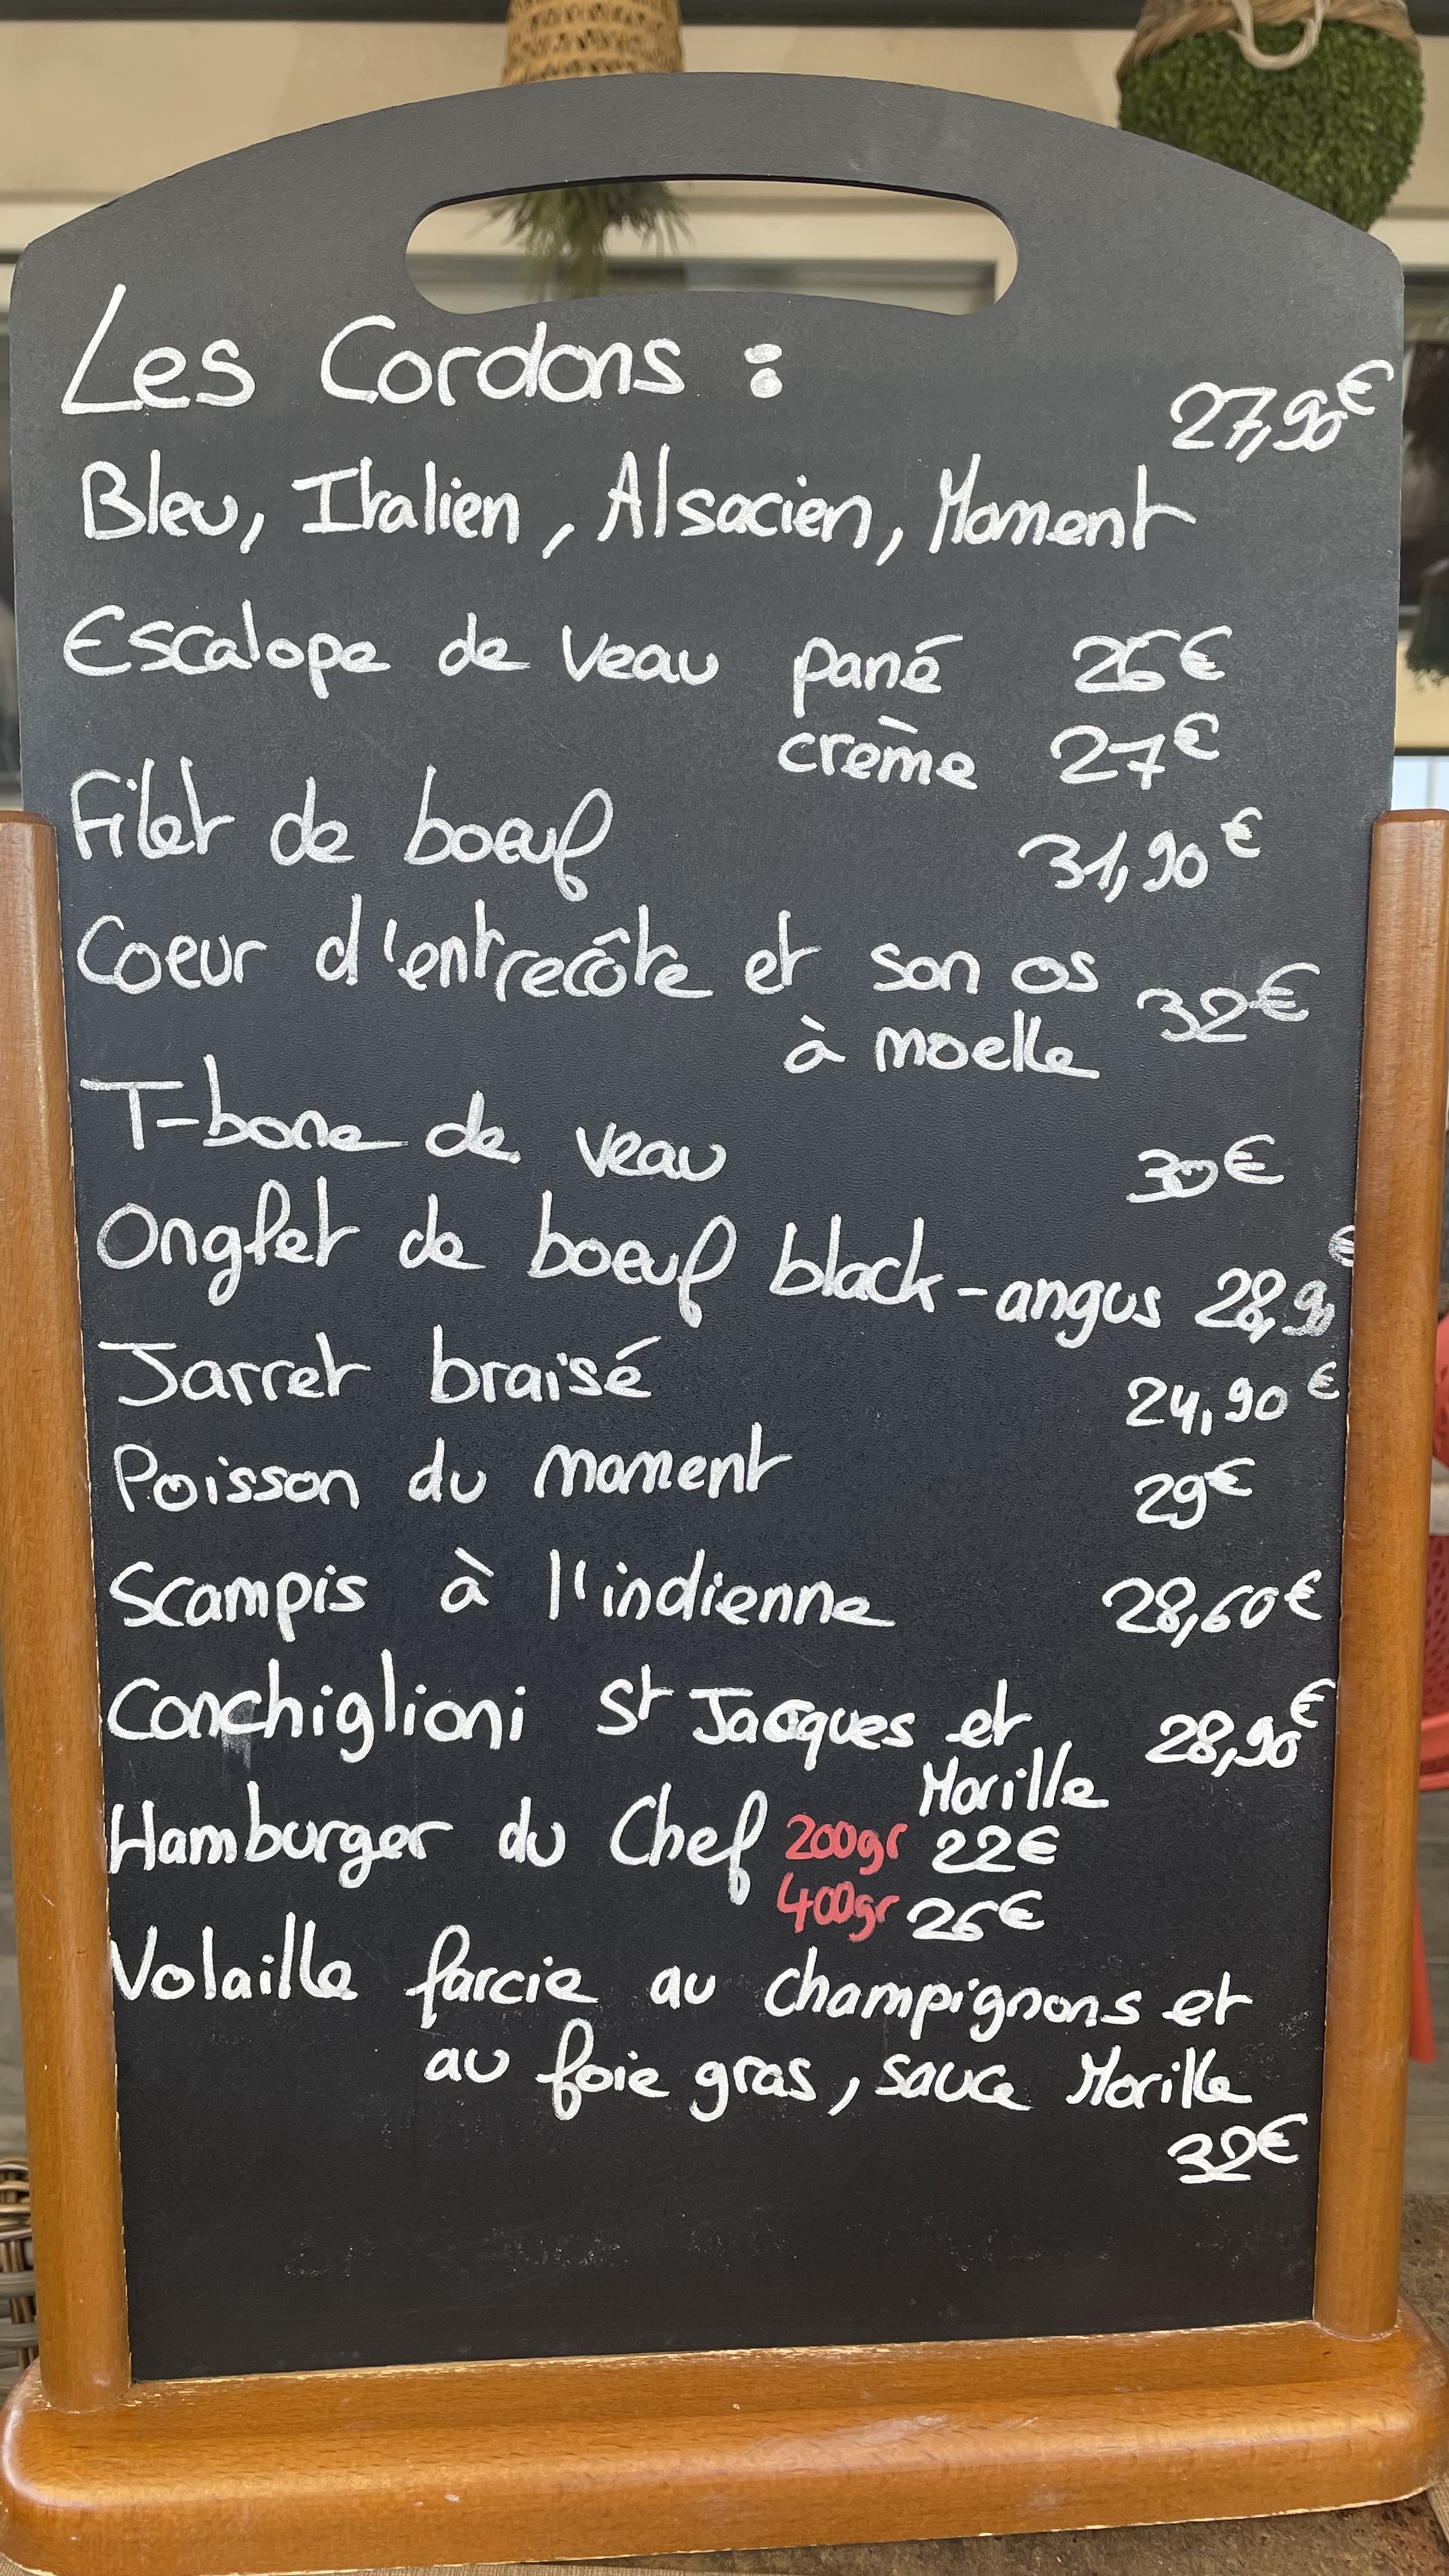 Les Cordons :
27,90€
Bleu, Italien, Alsacien, Moment
Escalope de veau pané 26€
crème 27€
Filet de boeuf 31,90€
Coeur d'entrecôte et son os
à moelle 32€
T-bone de veau 30€
Onglet de boeuf black-angus 28,90€
Jarret braisé 24,90€
Poisson du moment 29€
Scampis à l'indienne 28,60€
Conchiglioni St Jacques et 28,90€
Morille
Hamburger du Chef 200gr 22€
400gr 26€
Volaille farcie au champignons et
au foie gras, sauce Morille
32€